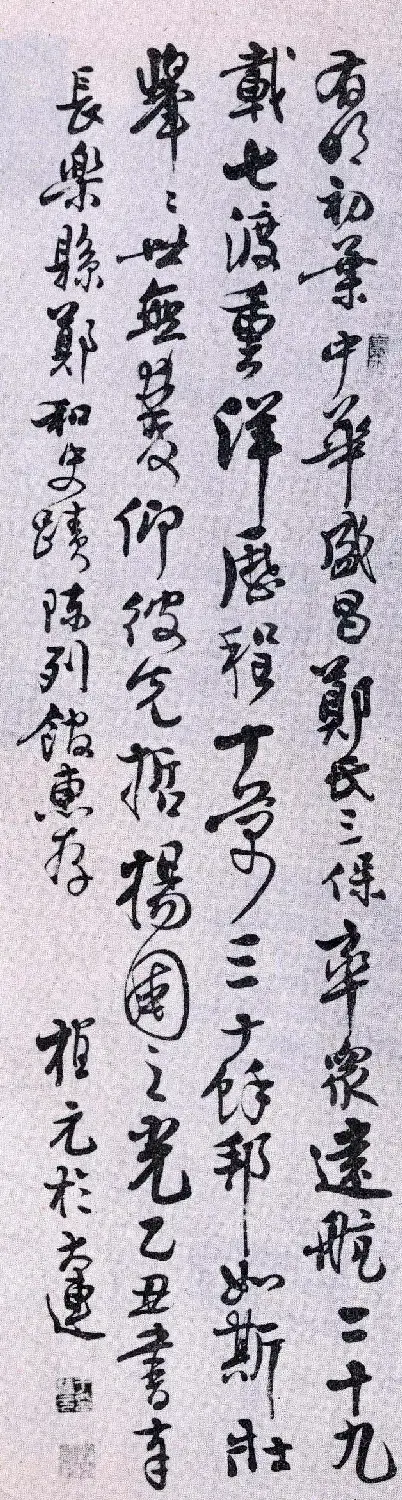 有明初葉中華盛昌鄭氏三保率眾遠航二十九
載七渡重洋歷程十萬三十餘邦如斯壯
舉々世無雙仰彼先哲揚國之光乙丑書奉
長樂縣鄭和史蹟陳列館惠存
植元於大連